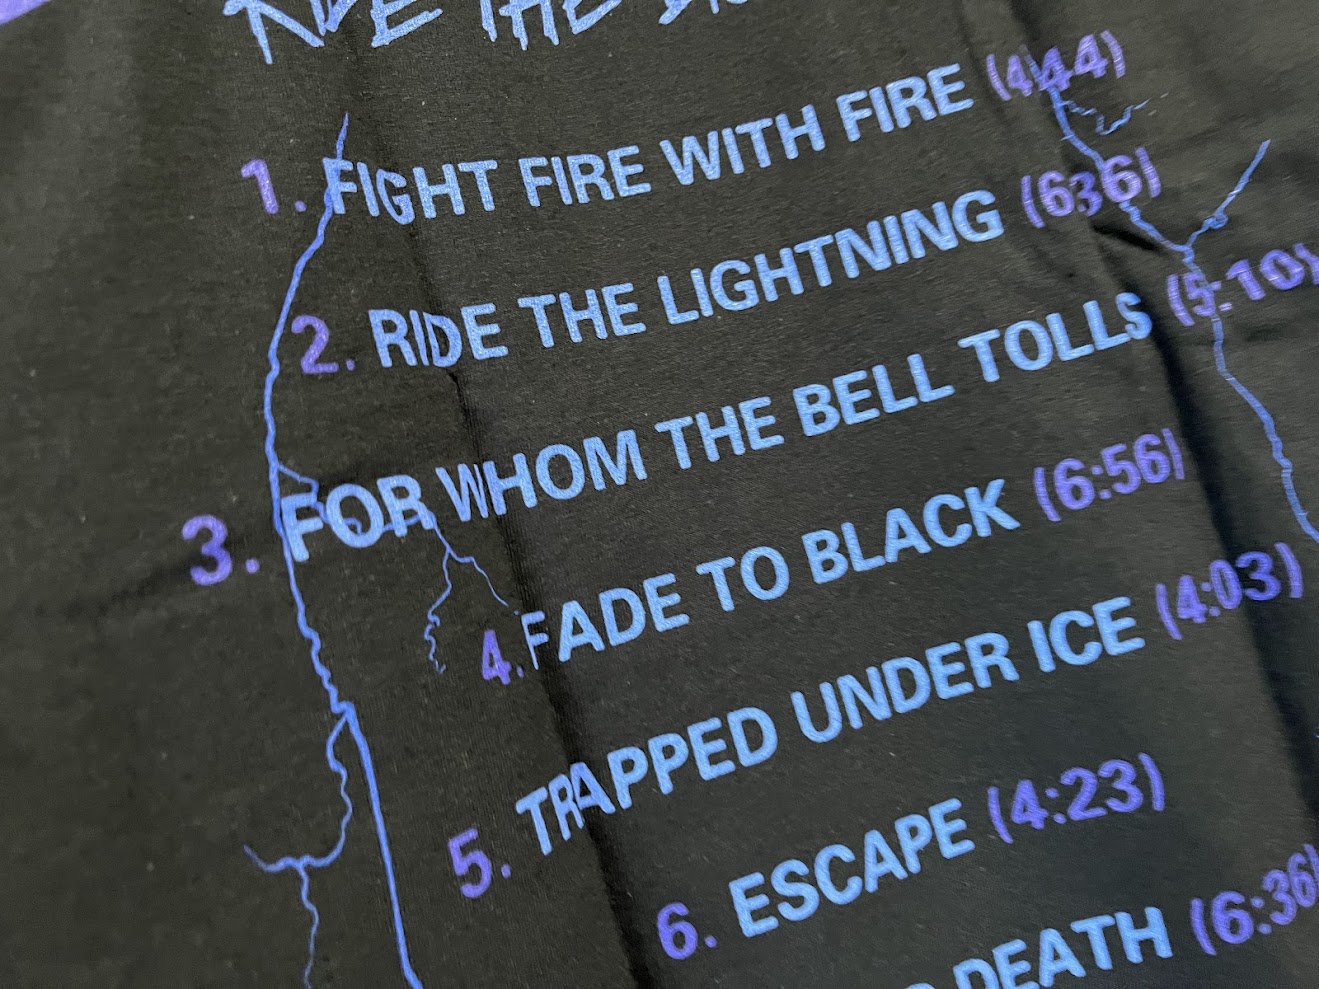 RIDE THE
1. FIGHT FIRE WITH FIRE (4:44)
2. RIDE THE LIGHTNING (6:36)
3. FOR WHOM THE BELL TOLLS (5:10)
4. FADE TO BLACK (6:56)
5. TRAPPED UNDER ICE (4:03)
6. ESCAPE (4:23)
DEATH (6:36)